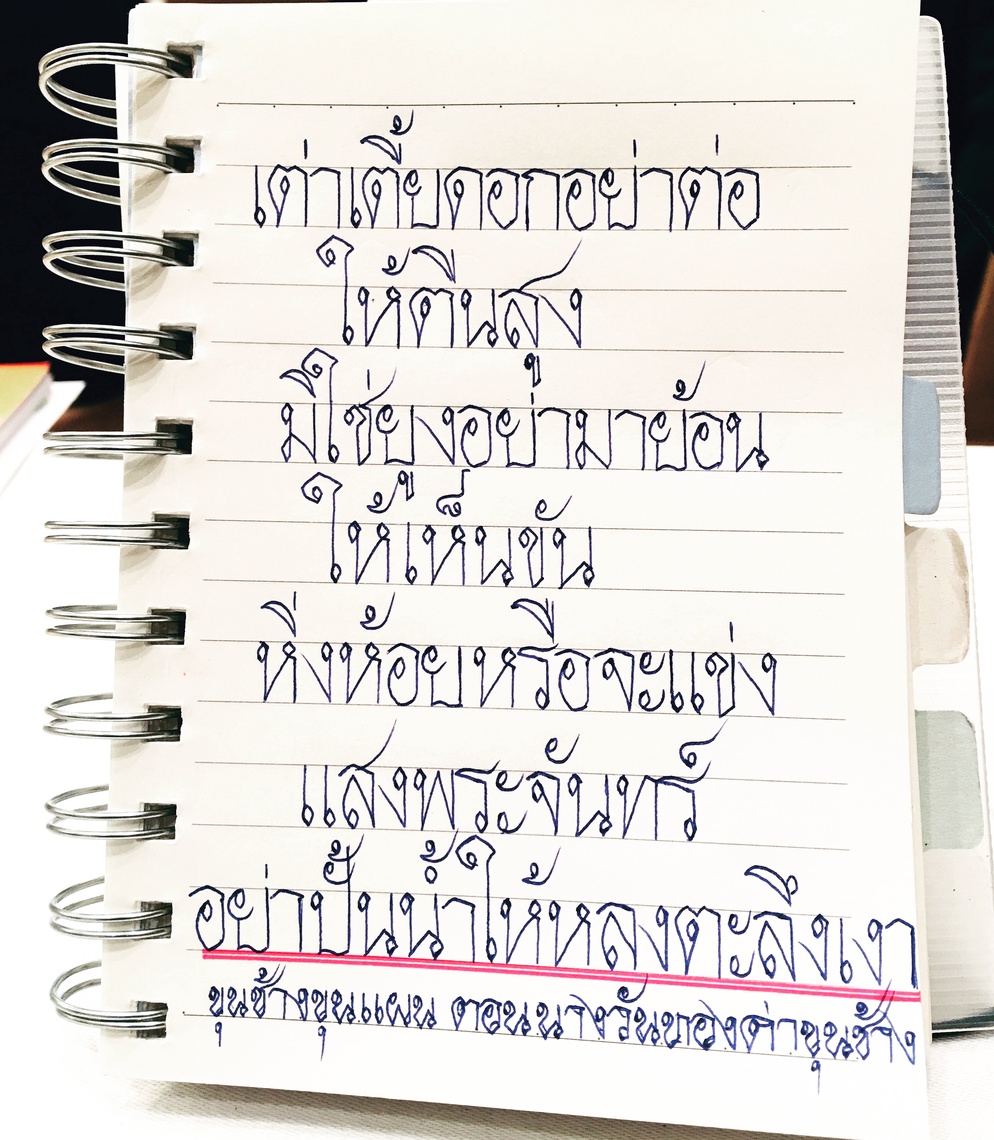 เต่าเตี้ยดอกอย่าต่อ
ให้ตีนสูง
มิใช่ยูงอย่ามาย้อม
ให้เห็นขัน
หิ่งห้อยหรือจะแข่ง
แสงพระจันทร์
อย่าปั้นน้ำให้หลงตะลึงเงา
ขุนช้างขุนแผน ตอนนางวันทองด่าขุนช้าง